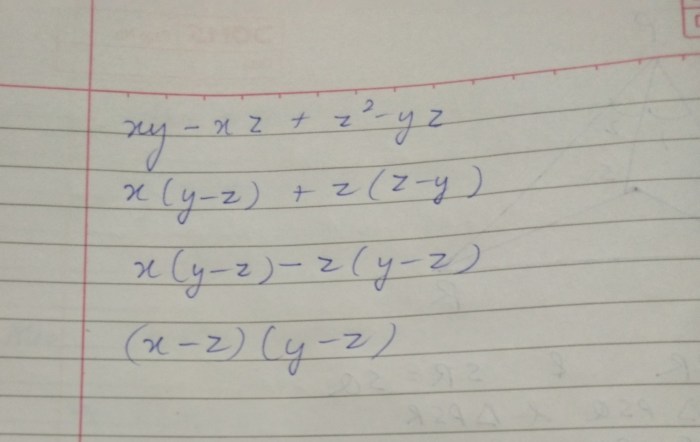 xy - xz + z² - yz
x(y-z) + z(z-y)
x(y-z) - z(y-z)
(x-z)(y-z)